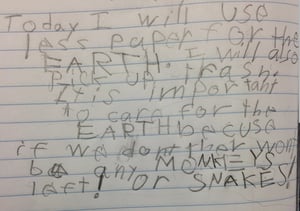 Today I will use
less paper for the
EARTH. I will also
Pick up trash.
It is important
to care for the
EARTH becuse
if we dont ther wont
be any MONKEYS
left! or SNAKES!